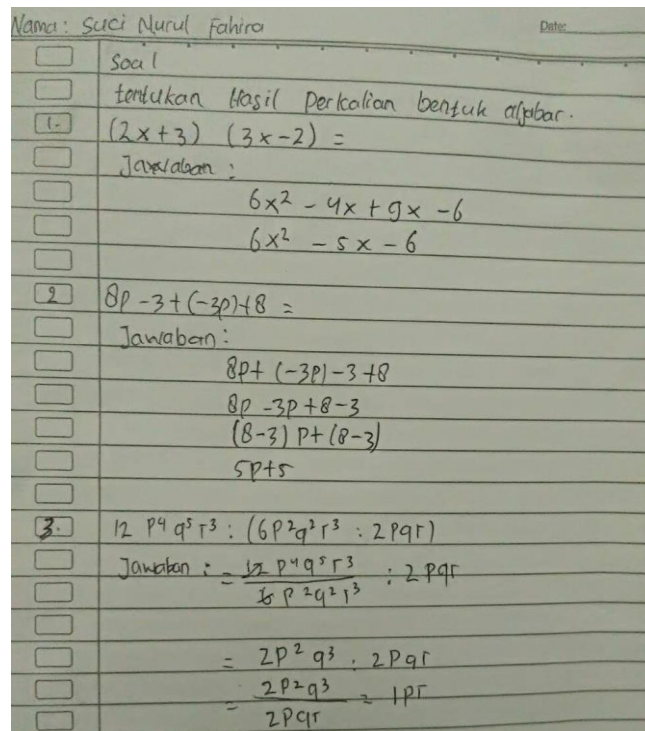 Nama: Suci Nurul Fahira Date:
Soal
tentukan Hasil Perkalian bentuk aljabar.
1. (2x+3) (3x-2) =
Jawaban :
6x² - 4x + 9x - 6
6x² - 5x - 6
2 8p - 3 + (-3p) + 8 =
Jawaban :
8p + (-3p) - 3 + 8
8p - 3p + 8 - 3
(8-3) p + (8-3)
5p+5
3. 12 p⁴ q⁵ r³ : (6p²q²r³ : 2pqr)
Jawaban : = 12 p⁴q⁵r³ / 6 p²q²r³ : 2pqr
= 2p² q³ : 2pqr
= 2p²q³ / 2pqr = 1pr